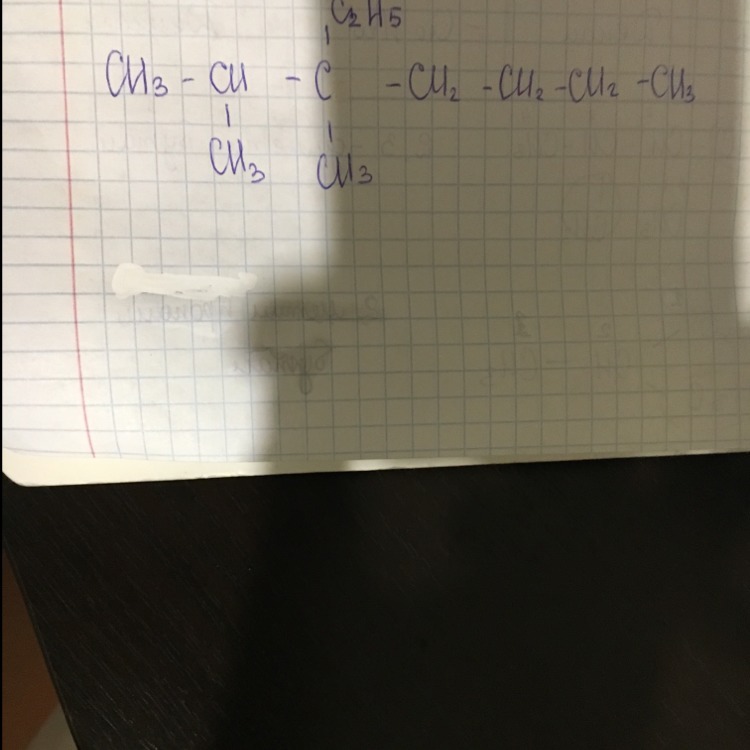 C2H5
CH3 - CH - C - CH2 - CH2 - CH2 - CH3
CH3 CH3